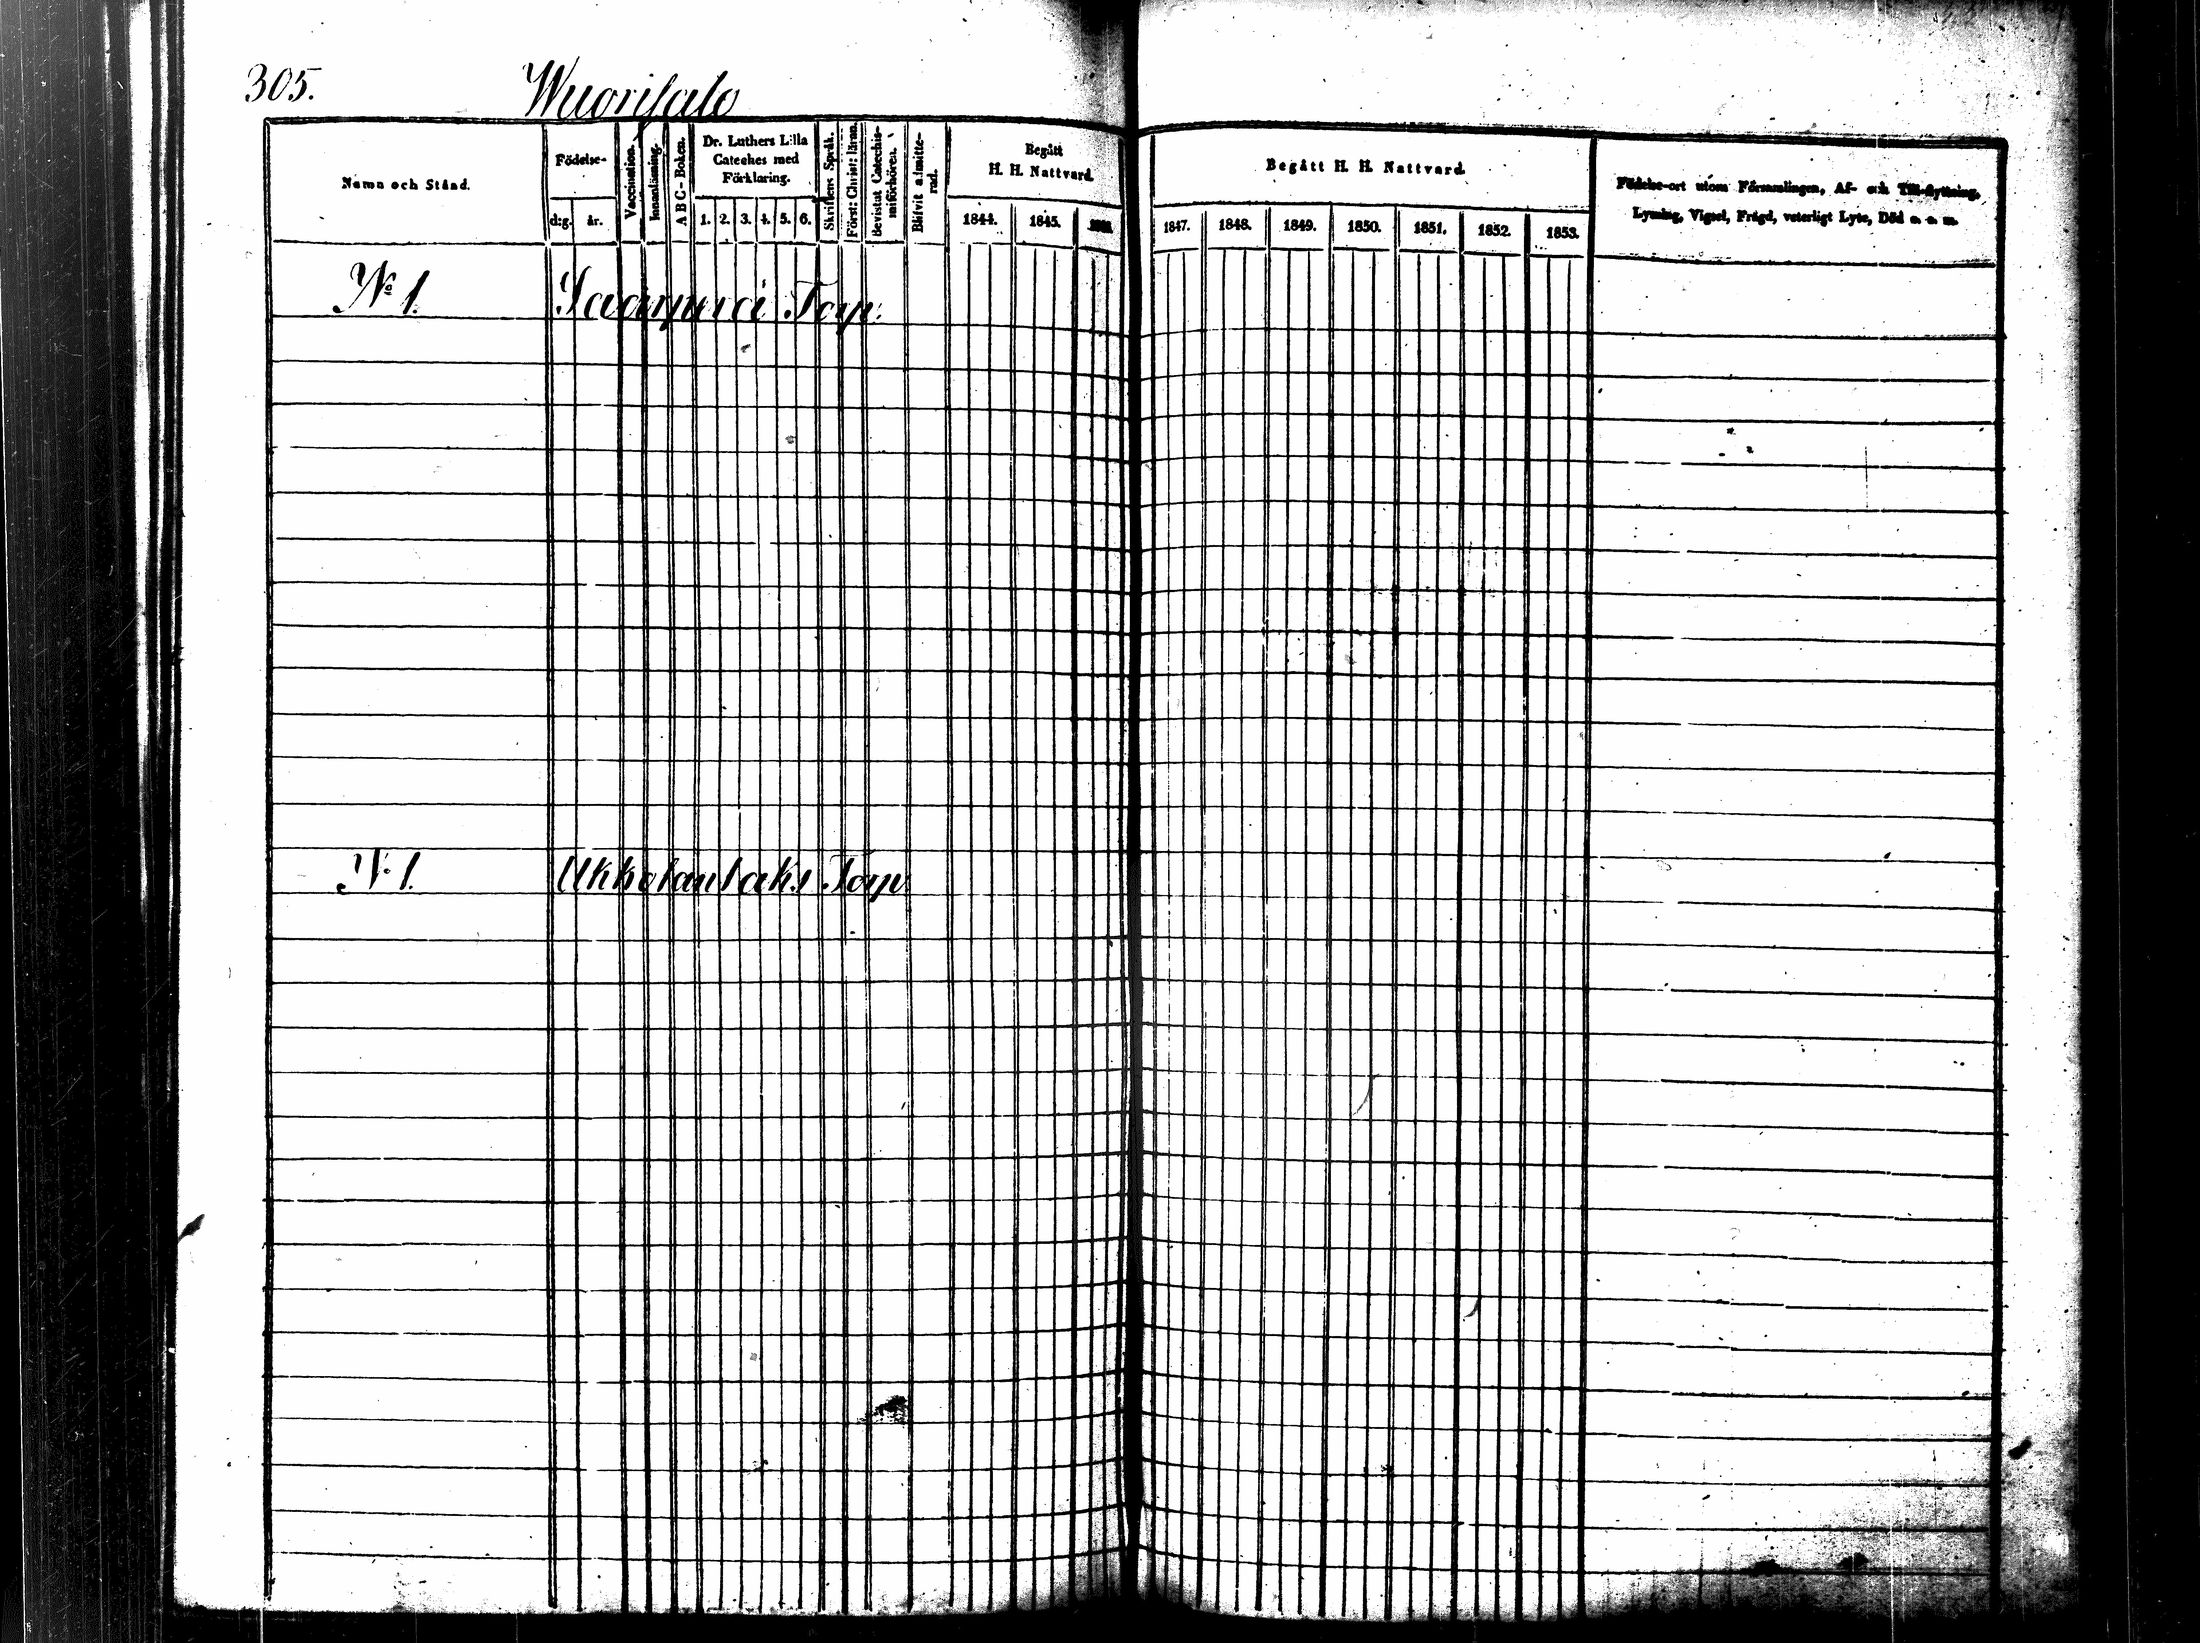 305. Wuorisalo
Namn och Stånd.
Födelse-
d:g. år.
Vaccination.
Innanläsning.
A B C - Boken.
Dr. Luthers Lilla
Cateches med
Förklaring.
1. 2. 3. 4. 5. 6.
Skriftens Språk.
Först: Christ: lärnn.
Bevistat Catechis-
miförhören.
Blifvit admitte-
rad.
Begått
H. H. Nattvard.
1844. 1845.
Begått H. H. Nattvard.
1847. 1848. 1849. 1850. 1851. 1852. 1853.
Födelse-ort utom Församlingen, Af- och Till-flyttning,
Lysning, Vigsel, Frägd, veterligt Lyte, Död o. s. m.
No 1. Torp
No 1. Torp